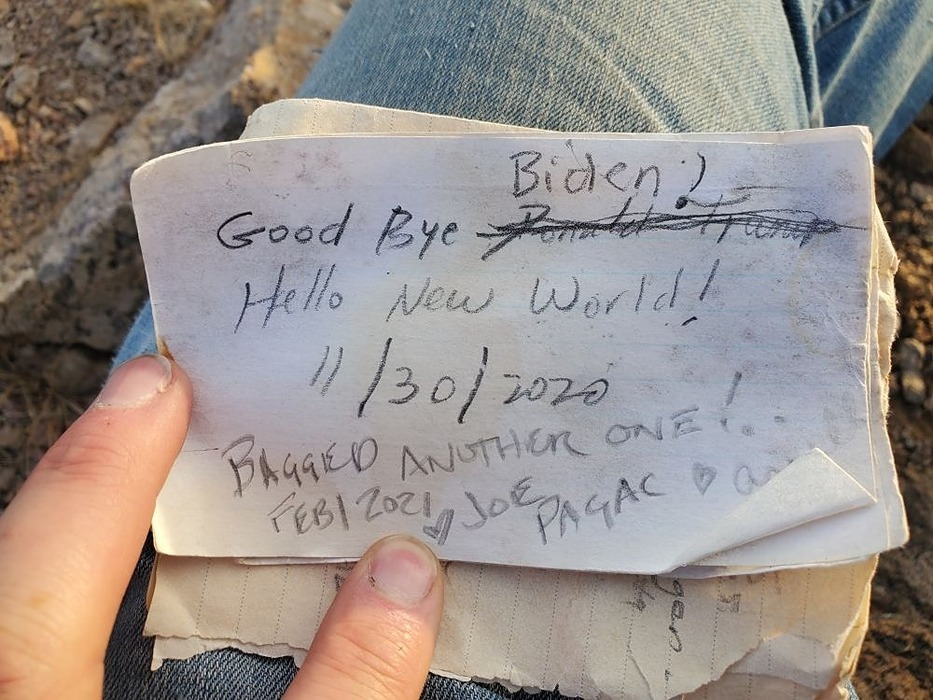 Biden!
Good Bye Donald Trump
Hello New World!
11/30/2020
BAGGED ANOTHER ONE!
FEB 1 2021 JOE PAGAC